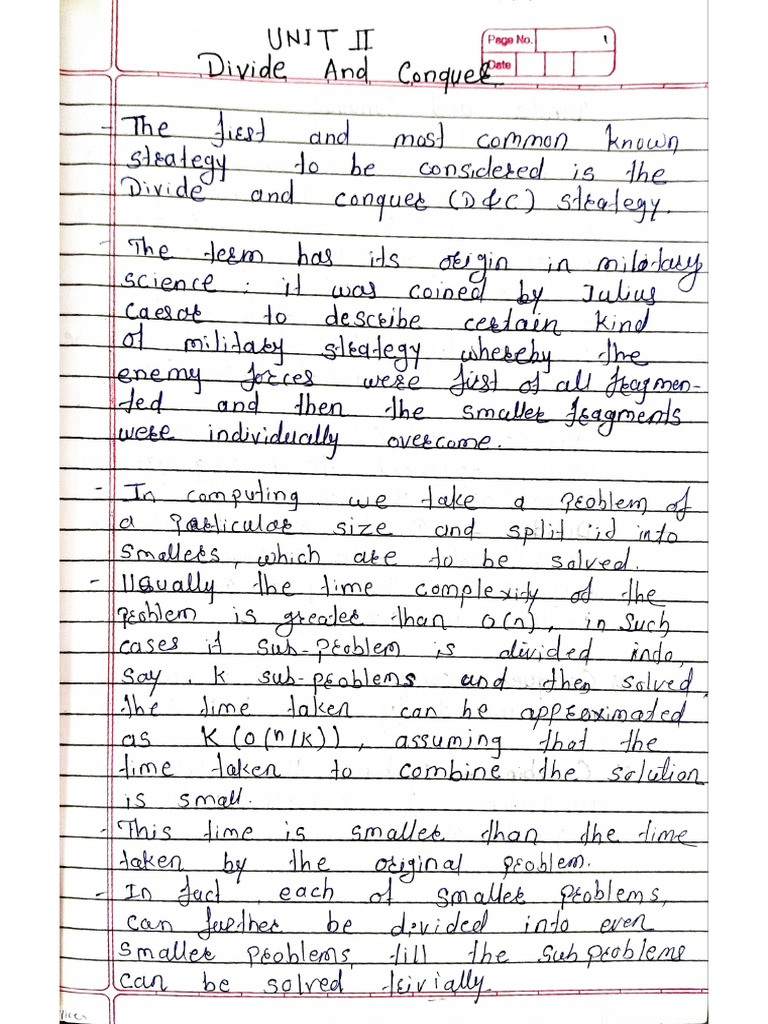 UNIT II
Page No. 1
Divide And Conquer
Date
- The first and most common known
strategy to be considered is the
Divide and conquer (D&C) strategy.
- The term has its origin in military
science : it was coined by Julius
Caesar to describe certain kind
of military strategy whereby the
enemy forces were first of all fragmen-
ted and then the smaller fragments
were individually overcome.
- In computing we take a problem of
a particular size and split it into
smallers, which are to be solved.
- Usually the time complexity of the
problem is greater than O(n), in such
cases if sub-problem is divided into,
say, K sub-problems and then solved,
the time taken can be approximated
as K(O(n/K)), assuming that the
time taken to combine the solution
is small.
- This time is smaller than the time
taken by the original problem.
- In fact, each of smaller problems,
can further be divided into even
smaller problems, till the sub problems
can be solved trivially.